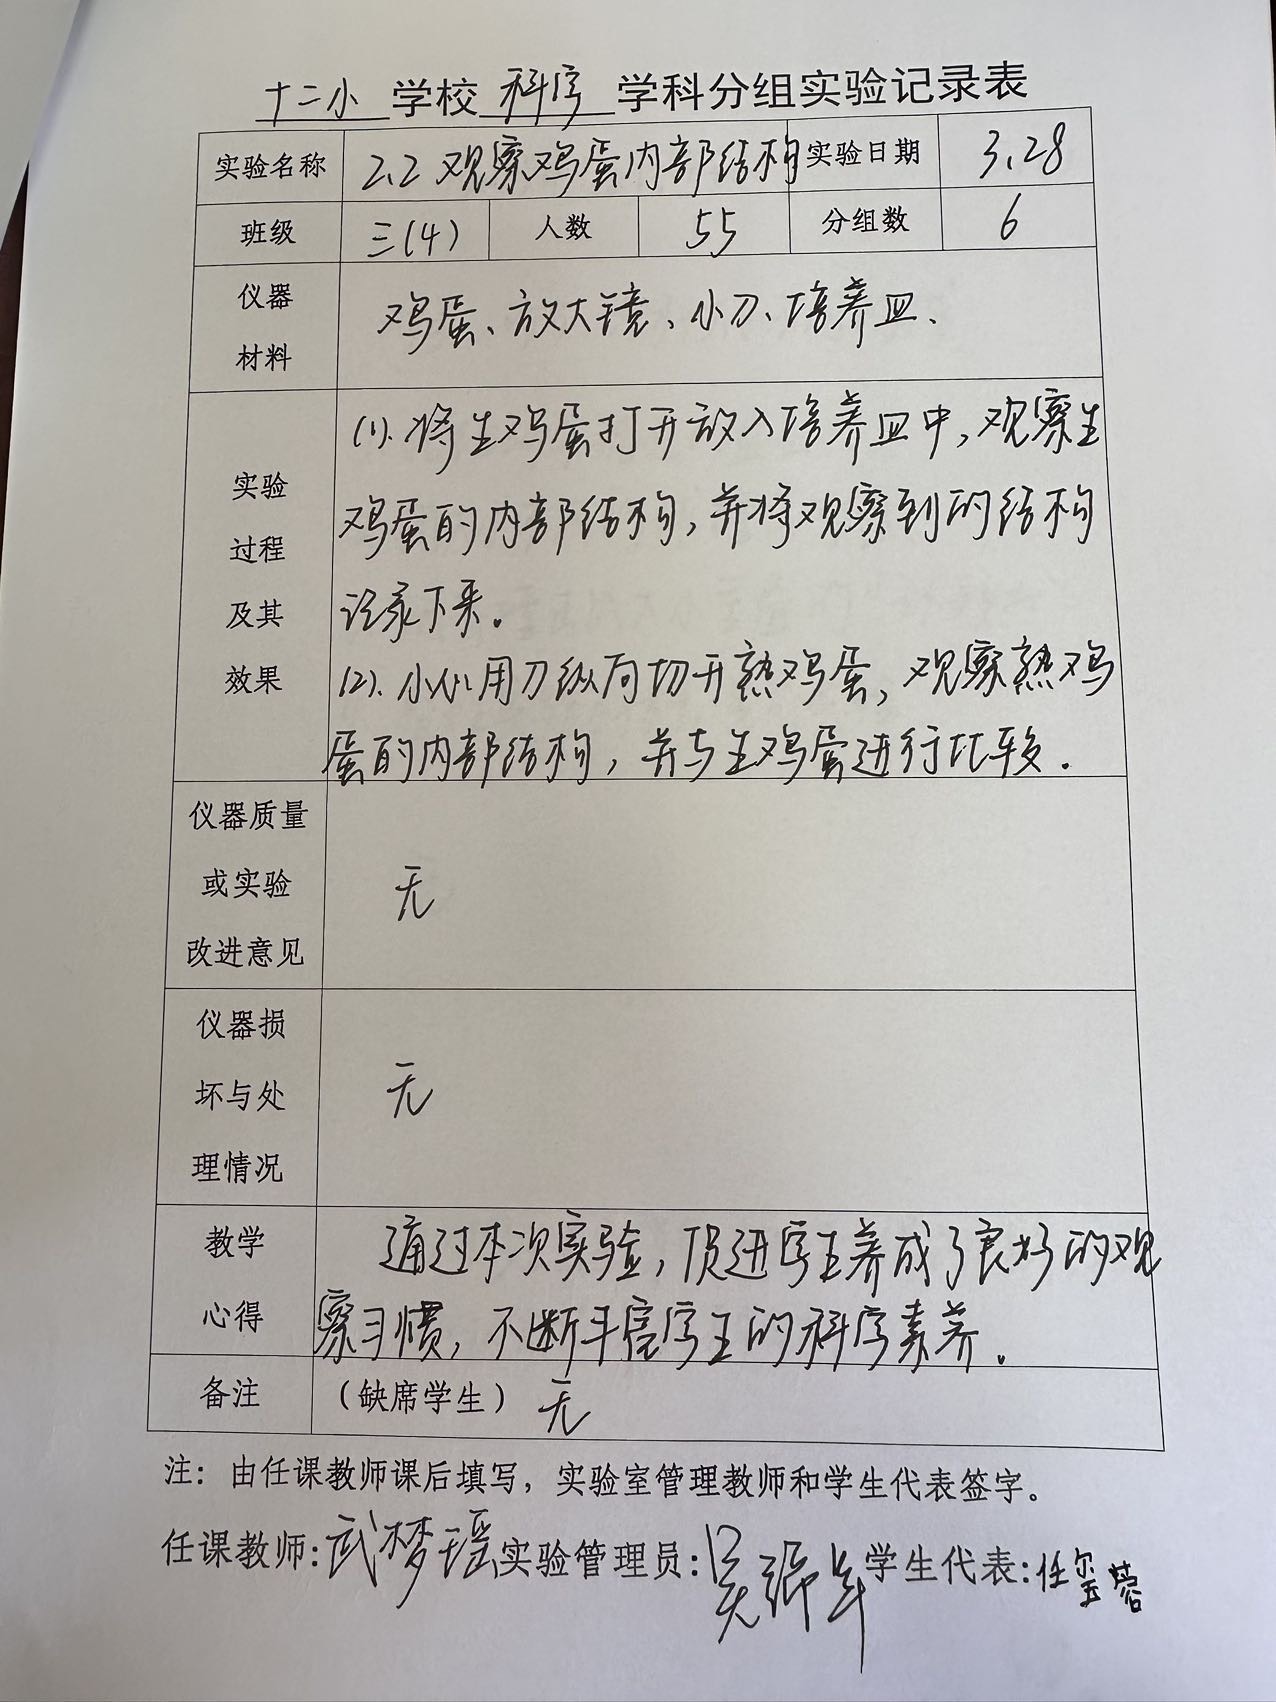 十二小 学校 科学 学科分组实验记录表
实验名称 2.2 观察鸡蛋内部结构 实验日期 3.28
班级 三(4) 人数 55 分组数 6
仪器
材料
鸡蛋、放大镜、小刀、培养皿、
实验
过程
及其
效果
(1). 将生鸡蛋打开放入培养皿中,观察生
鸡蛋的内部结构,并将观察到的结构
记录下来。
(2). 小心用刀纵向切开熟鸡蛋,观察熟鸡
蛋的内部结构,并与生鸡蛋进行比较.
仪器质量
或实验
改进意见
无
仪器损
坏与处
理情况
无
教学
心得
通过本次实验,促进学生养成了良好的观
察习惯,不断丰富学生的科学素养.
备注 (缺席学生) 无
注:由任课教师课后填写,实验室管理教师和学生代表签字。
任课教师:武梦瑶 实验管理员:吴 学生代表:任玺蓉